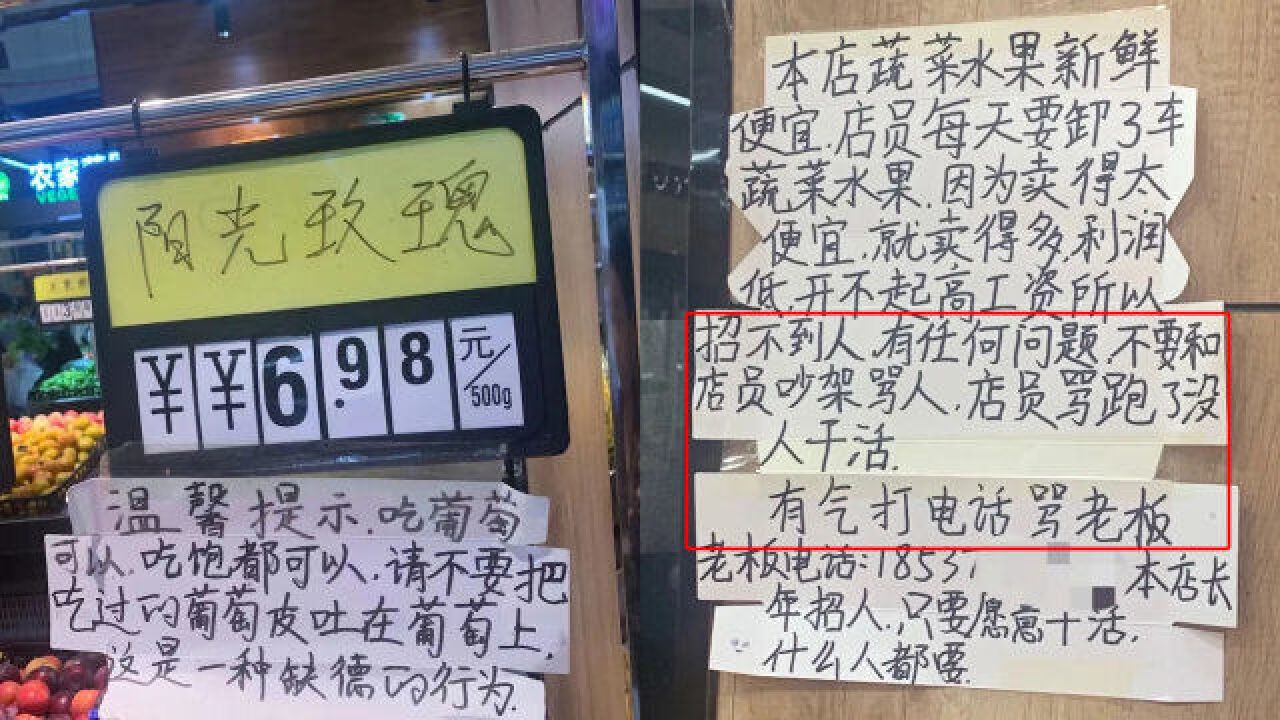 农家
VEGE
阳光玫瑰
¥¥6.98元/500g
温馨提示.吃葡萄
可以.吃饱都可以.请不要把
吃过的葡萄皮吐在葡萄上,
这是一种缺德的行为.
本店蔬菜水果新鲜
便宜.店员每天要卸3车
蔬菜水果.因为卖得太
便宜.就卖得多.利润
低.开不起高工资所以
招不到人.有任何问题.不要和
店员吵架骂人.店员骂跑了没
人干活.
有气打电话骂老板
老板电话:18537
本店长
年招人.只要愿意干活.
什么人都要.